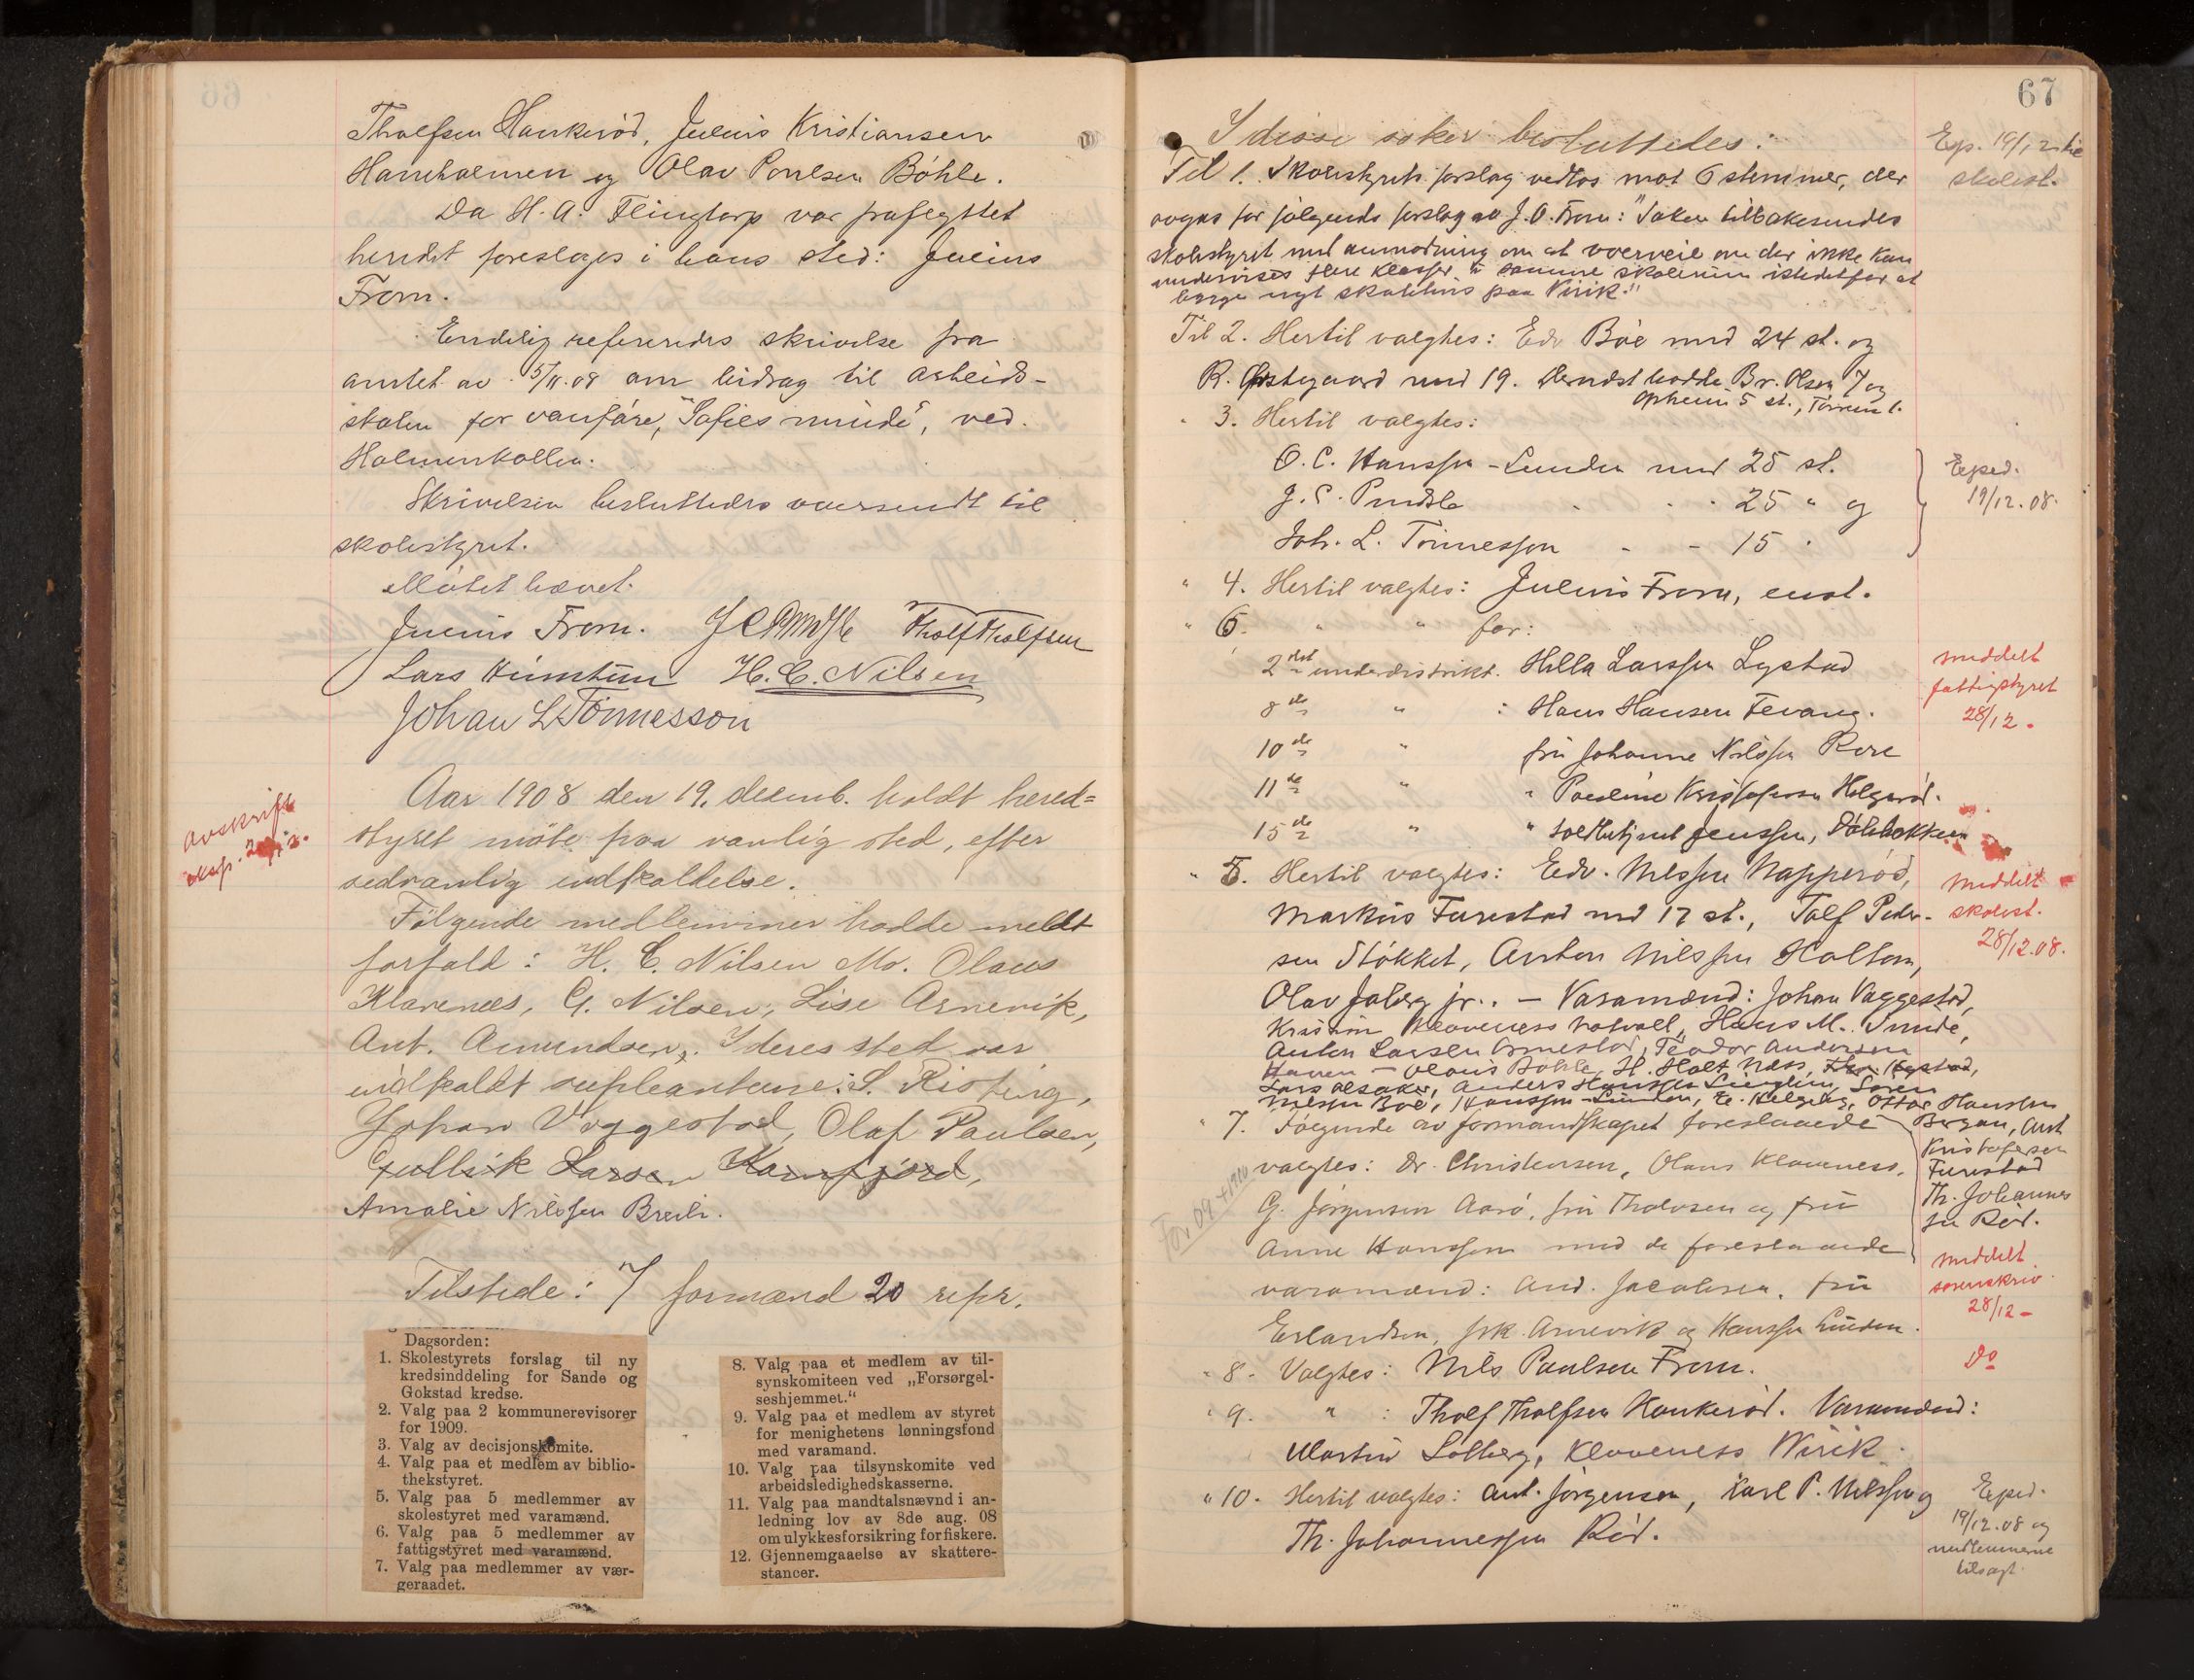 66
Tholfsen Haukerød, Julius Kristiansen
Haneholmen og Olav Poulsen Bøhle.
Da H. A. Flingtorp var fraflyttet
heredet foreslages i hans sted: Julius
From.
Endelig refereredes skrivelse fra
amtet av 5/11.08 om bidrag til arbeids-
skolen for vanføre, "Sofies minde", ved
Holmenkollen.
Skrivelsen besluttedes oversendt til
skolestyret.
Møtet hævet.
Julius From. Tholf Tholfsen
Lars Himtun H. C. Nilsen
Johan L. Tønnesson
Avskrift
eksp.
Aar 1908 den 19. desemb. holdt hered=
styret møte paa vanlig sted, efter
sedvanlig indkaldelse.
Følgende medlemmer hadde meldt
forfald: H. C. Nilsen Mo. Olaus
Klavenæs, G. Nilsen, Lise Arnevik,
Ant. Amundsen. I deres sted var
indkaldt supleantene: S. Risting,
Johan Vaggestad, Olaf Paulsen,
Gullik Larsen Kamfjord,
Amalie Nilssen Breili.
Tilstede: 7 formænd 20 repr.
Dagsorden:
1. Skolestyrets forslag til ny
kredsinddeling for Sande og
Gokstad kredse.
2. Valg paa 2 kommunerevisorer
for 1909.
3. Valg av decisjonskomite.
4. Valg paa et medlem av biblio-
thekstyret.
5. Valg paa 5 medlemmer av
skolestyret med varamænd.
6. Valg paa 5 medlemmer av
fattigstyret med varamænd.
7. Valg paa medlemmer av vær-
geraadet.
8. Valg paa et medlem av til-
synskomiteen ved „Forsørgel-
seshjemmet.“
9. Valg paa et medlem av styret
for menighetens lønningsfond
med varamand.
10. Valg paa tilsynskomite ved
arbeidsledighedskasserne.
11. Valg paa mandtalsnævnd i an-
ledning lov av 8de aug. 08
om ulykkesforsikring for fiskere.
12. Gjennemgaaelse av skattere-
stancer.
67
I disse saker besluttedes:
Exp. 19/12 til
skolest.
Til 1. Skolestyrets forslag vedtos mot 6 stemmer, der
avgas for følgende forslag av J. O. From: "Saken tilbakesendes
skolestyret med anmodning om at overveie om der ikke kan
undervises flere klasser i samme skolerum istedetfor at
bygge nyt skolehus paa Virik."
Til 2. Hertil valgtes: Edv Bøe med 24 st. og
R. Østegaard med 19. Dernæst hadde Br. Olsen 7 og
Opheim 5 st.,
" 3. Hertil valgtes:
O. C. Hansen-Lunden med 25 st.
J. C. Pindsle " " 25 " og
Joh. L. Tønnessen - - 15 "
Exped.
19/12.08.
" 4. Hertil valgtes: Julius From, enst.
" 6. " " for:
2det underdistrikt. Hella Larssen Lystad
8de " : Hans Hansen Fevang.
10de " fru Johanne Nilssen Rore
11te " " Pauline Kristofersen Helgerød.
15de " " Jenssen,
meddelt
fattigstyret
28/12 -
" 5. Hertil valgtes: Edv. Nilssen Napperød,
Markus Furustad med 17 st., Tolf Peder-
sen Støkket, Anton Nilssen Haltom,
Olav Jaberg jr.. – Varamænd: Johan Vaggestad,
Kristian Klaveness Hotvall, Hans M. Sunde,
Anton Larsen Ormestad, Teodor Andersen
Haven – Olaus Bøhle, H. Holt Næss,
Lars Alsaker, Anders Hansen Liverlien, Søren
Nilssen Bøe, Hansen-Lunden, E. Helgeby, Ottar Hanssen
Bergan, Ant
Kristofersen
Furustad
Th. Johannes
sen Rød.
meddelt
skolest.
28/12.08.
" 7. Følgende av formandskapet foreslaaede
For 09 + 1910
valgtes: Dr. Christensen, Olaus Klaveness,
G. Jørgensen Aarø, fru Tholvsen og fru
Anne Hanssen med de foreslaaede
varamænd: And. Jacobsen, fru
Erlandsen, frk. Arnevik og Hanssen Lunden.
meddelt
sorenskriv
28/12 -
" 8. Valgtes: Nils Paulsen From.
Do
" 9. " : Tholf Tholfsen Haukerød. Varamænd:
Martin Solberg, Klaveness Virik.
" 10. Hertil valgtes: Ant. Jørgensen, Karl P. Nilssen og
Th. Johannessen Rød.
Exped.
19/12.08 og
medlemmerne
tilsagt